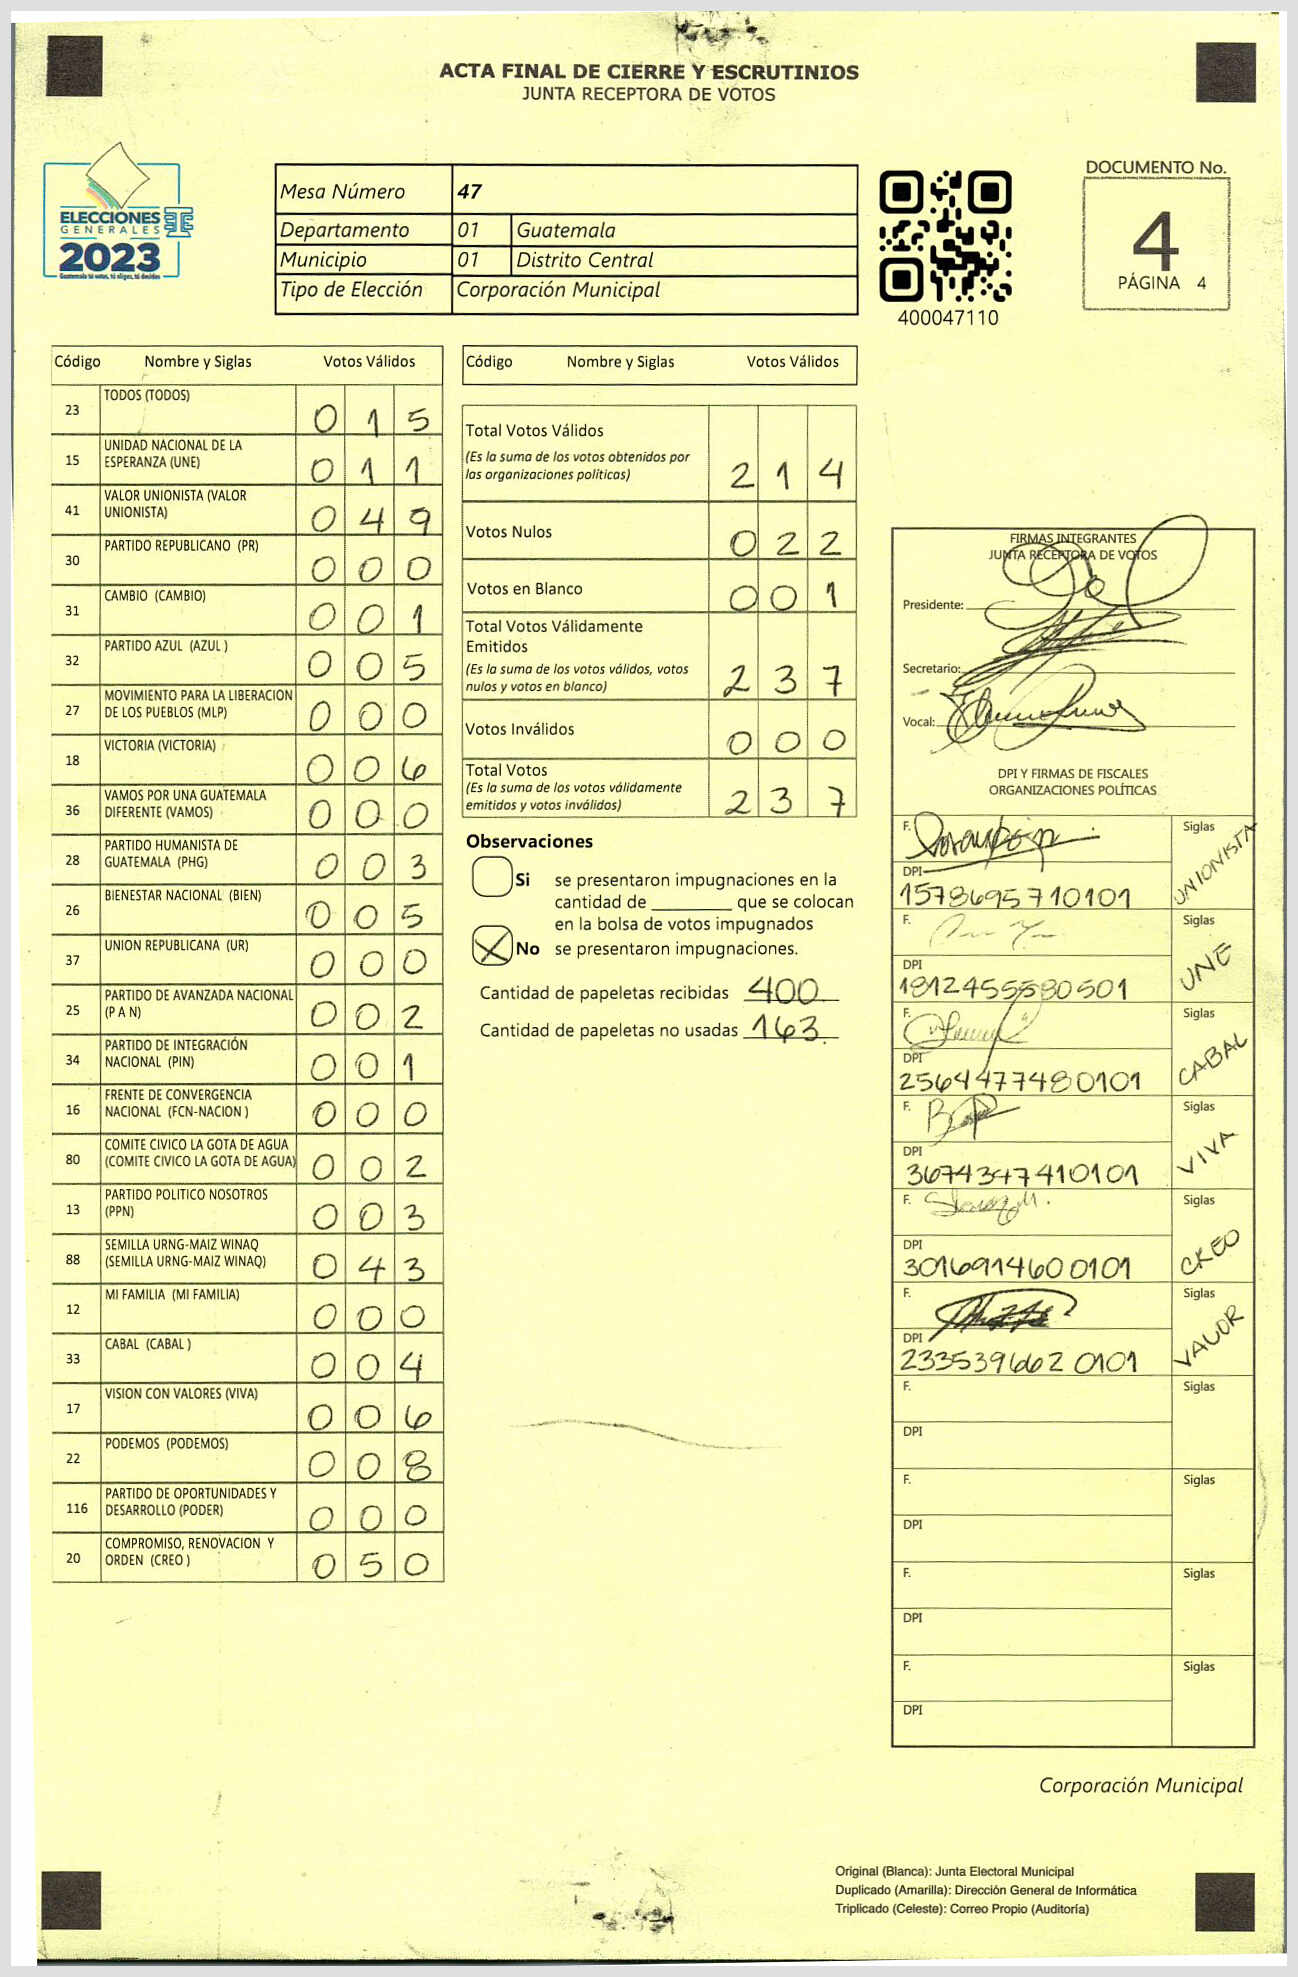 ACTA FINAL DE CIERRE Y ESCRUTINIOS
JUNTA RECEPTORA DE VOTOS
ELECCIONES
GENERALES
2023
Guatemala tú votas, tú eliges, tú decides
Mesa Número 47
Departamento 01 Guatemala
Municipio 01 Distrito Central
Tipo de Elección Corporación Municipal
400047110
DOCUMENTO No.
4
PÁGINA 4
Código Nombre y Siglas Votos Válidos
23 TODOS (TODOS) 0 1 5
15 UNIDAD NACIONAL DE LA ESPERANZA (UNE) 0 1 1
41 VALOR UNIONISTA (VALOR UNIONISTA) 0 4 9
30 PARTIDO REPUBLICANO (PR) 0 0 0
31 CAMBIO (CAMBIO) 0 0 1
32 PARTIDO AZUL (AZUL ) 0 0 5
27 MOVIMIENTO PARA LA LIBERACION DE LOS PUEBLOS (MLP) 0 0 0
18 VICTORIA (VICTORIA) 0 0 6
36 VAMOS POR UNA GUATEMALA DIFERENTE (VAMOS) 0 0 0
28 PARTIDO HUMANISTA DE GUATEMALA (PHG) 0 0 3
26 BIENESTAR NACIONAL (BIEN) 0 0 5
37 UNION REPUBLICANA (UR) 0 0 0
25 PARTIDO DE AVANZADA NACIONAL (P A N) 0 0 2
34 PARTIDO DE INTEGRACIÓN NACIONAL (PIN) 0 0 1
16 FRENTE DE CONVERGENCIA NACIONAL (FCN-NACION ) 0 0 0
80 COMITE CIVICO LA GOTA DE AGUA (COMITE CIVICO LA GOTA DE AGUA) 0 0 2
13 PARTIDO POLITICO NOSOTROS (PPN) 0 0 3
88 SEMILLA URNG-MAIZ WINAQ (SEMILLA URNG-MAIZ WINAQ) 0 4 3
12 MI FAMILIA (MI FAMILIA) 0 0 0
33 CABAL (CABAL ) 0 0 4
17 VISION CON VALORES (VIVA) 0 0 6
22 PODEMOS (PODEMOS) 0 0 8
116 PARTIDO DE OPORTUNIDADES Y DESARROLLO (PODER) 0 0 0
20 COMPROMISO, RENOVACION Y ORDEN (CREO ) 0 5 0
Código Nombre y Siglas Votos Válidos
Total Votos Válidos 2 1 4
(Es la suma de los votos obtenidos por
las organizaciones políticas)
Votos Nulos 0 2 2
Votos en Blanco 0 0 1
Total Votos Válidamente
Emitidos 2 3 7
(Es la suma de los votos válidos, votos
nulos y votos en blanco)
Votos Inválidos 0 0 0
Total Votos 2 3 7
(Es la suma de los votos válidamente
emitidos y votos inválidos)
Observaciones
Si se presentaron impugnaciones en la
cantidad de ________ que se colocan
en la bolsa de votos impugnados
X No se presentaron impugnaciones.
Cantidad de papeletas recibidas 400
Cantidad de papeletas no usadas 163.
FIRMAS INTEGRANTES
JUNTA RECEPTORA DE VOTOS
Presidente:
Secretario:
Vocal:
DPI Y FIRMAS DE FISCALES
ORGANIZACIONES POLÍTICAS
F. Siglas UNIONISTA
DPI 1578695710101
F. Siglas UNE
DPI 1812455580501
F. Siglas CABAL
DPI 2564477480101
F. Siglas VIVA
DPI 3674347410101
F. Siglas CREO
DPI 3016914600101
F. Siglas VALOR
DPI 2335396620101
F. Siglas
DPI
F. Siglas
DPI
F. Siglas
DPI
F. Siglas
DPI
Corporación Municipal
Original (Blanca): Junta Electoral Municipal
Duplicado (Amarilla): Dirección General de Informática
Triplicado (Celeste): Correo Propio (Auditoría)